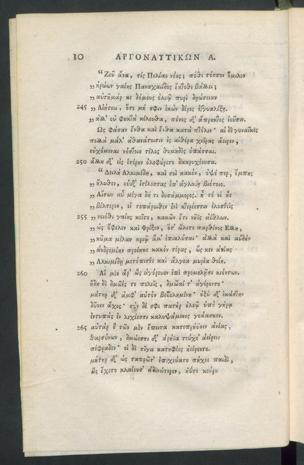 10 ΑΡΓΟΝΑΥΤΙΚΩΝ Α.
“Ζεῦ ἄνα, τίς Πελίαο νόος; πόθι τόσσον ὅμιλον
„ ἡρώων γαίης Παναχαιΐδος ἔκτοθι βάλλει;
„ αὐτῆμάρ κε δόμους ὀλοῷ πυρὶ δῃώσειαν
245 „ Αἰήτεω, ὅτε μή σφιν ἑκὼν δέρος ἐγγυαλίξῃ.
„ ἀλλ᾽ οὐ φυκτὰ κέλευθα, πόνος δ᾽ ἄπρηκτος ἰοῦσιν.
Ὣς φάσαν ἔνθα καὶ ἔνθα κατὰ πτόλιν· αἱ δὲ γυναῖκες
πολλὰ μάλ᾽ ἀθανάτοισιν ἐς αἰθέρα χεῖρας ἄειρον,
εὐχόμεναι νόστοιο τέλος θυμηδὲς ὀπάσσαι.
250 ἄλλη δ᾽ εἰς ἑτέρην ὀλοφύρετο δακρυχέουσα.
“Δειλὴ Ἀλκιμέδη, καὶ σοὶ κακὸν, ὀψέ περ, ἔμπης
„ ἤλυθεν, οὐδ᾽ ἐτέλεσσας ἐπ᾽ ἀγλαΐῃ βιότοιο.
„ Αἴσων αὖ μέγα δή τι δυσάμμορος. ἦ τέ οἱ ἦεν
„ βέλτερον, εἰ τοπάροιθεν ἐνὶ κτερέεσσιν ἐλυσθεὶς
255 „ νειόθι γαίης κεῖτο, κακῶν ἔτι νῆϊς ἀέθλων.
„ ὡς ὄφελεν καὶ Φρίξον, ὅτ᾽ ὤλετο παρθένος Ἕλλη,
„ κῦμα μέλαν κριῷ ἅμ᾽ ἐπικλύσαι· ἀλλὰ καὶ αὐδὴν
„ ἀνδρομέην προέηκε κακὸν τέρας, ὥς κεν ἀνίας
„ Ἀλκιμέδῃ μετόπισθε καὶ ἄλγεα μυρία θείη.
260 Αἱ μὲν ἄρ᾽ ὣς ἀγόρευον ἐπὶ προμολῇσι κιόντων.
ἤδη δὲ δμῶές τε πολεῖς, δμωαί τ᾽ ἀγέροντο·
μήτηρ δ᾽ ἀμφ᾽ αὐτὸν βεβολημένη· ὀξὺ δ᾽ ἑκάστην
δῦνεν ἄχος· σὺν δέ σφι πατὴρ ὀλοῷ ὑπὸ γήραϊ
ἐντυπὰς ἐν λεχέεσσι καλυψάμενος γοάασκεν.
265 αὐτὰρ ὁ τῶν μὲν ἔπειτα κατεπρήϋνεν ἀνίας,
θαρσύνων, δμώεσσι δ᾽ ἀρήϊα τεύχε᾽ ἀείρειν
πέφραδεν· οἱ δέ τε σῖγα κατηφέες ἠείροντο.
μήτηρ δ᾽ ὡς ταπρῶτ᾽ ἐπεχεύατο πήχεε παιδὶ,
ὣς ἔχετο κλαίουσ᾽ ἀδινώτερον, ἠΰτε κούρη